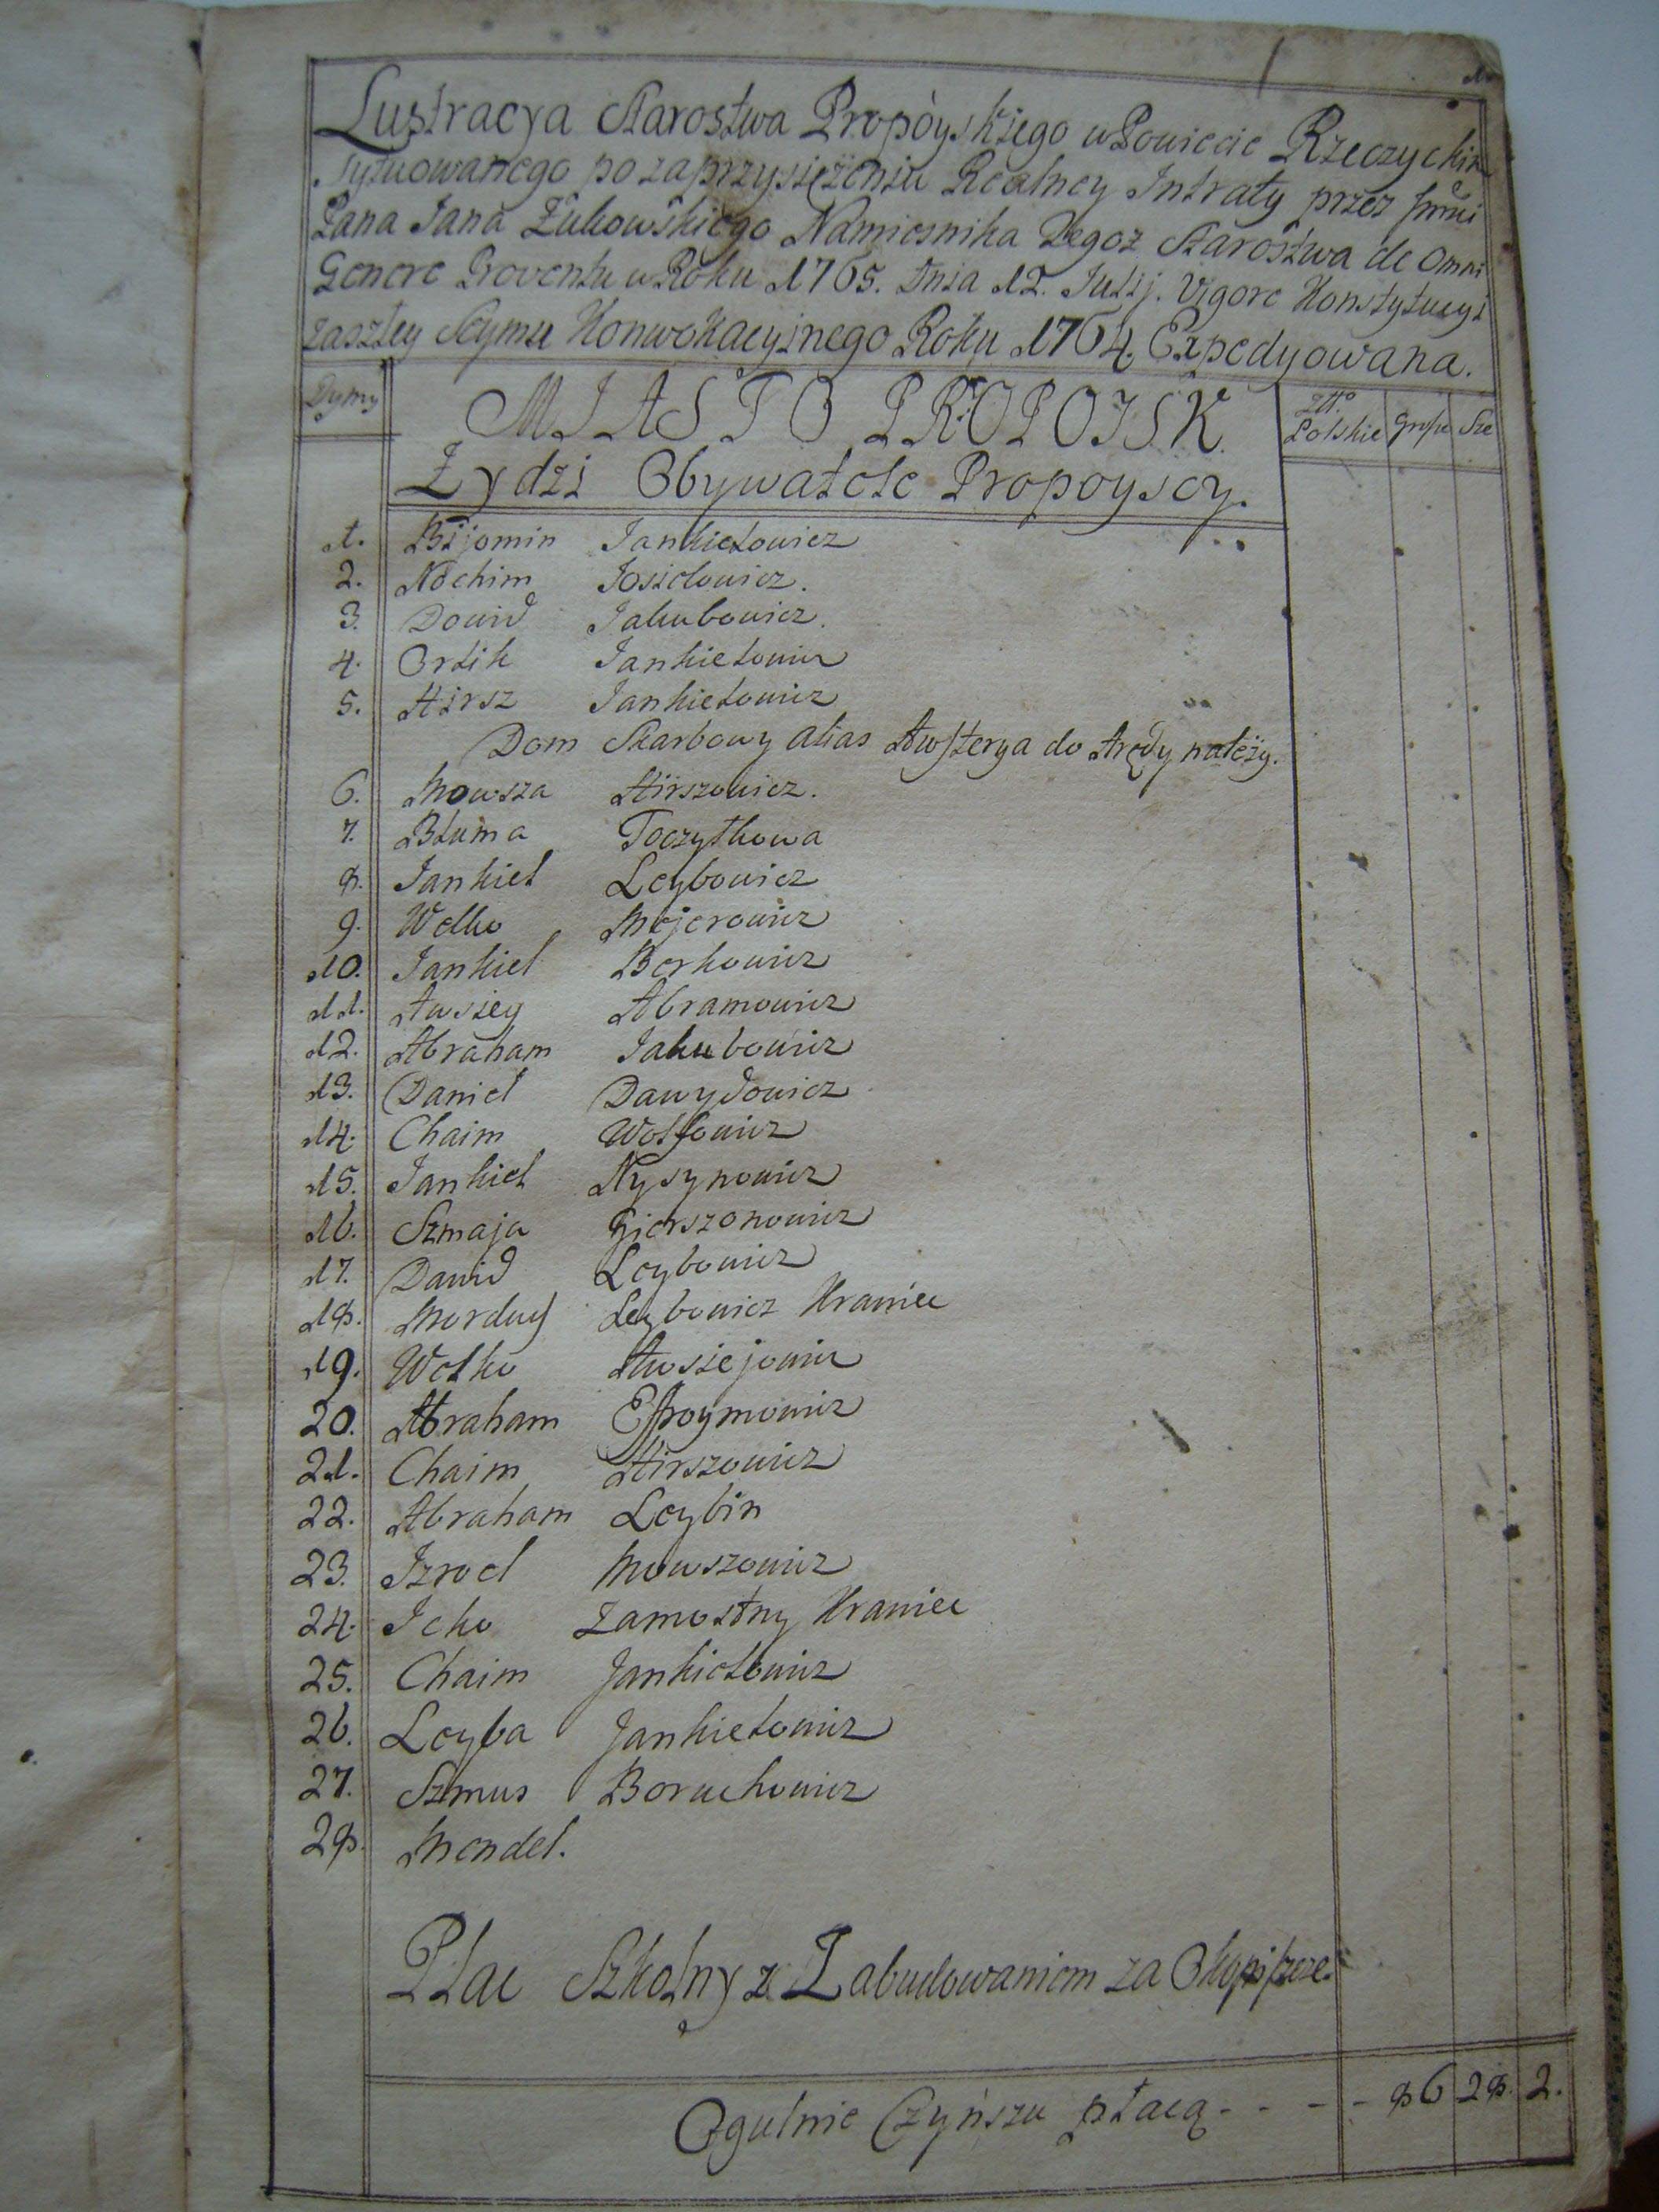 Lustracya Starostwa Propòyskiego w Powiecie Rzeczyckim
Sytuowanego po zaprzysiężeniu Realney Intraty przez
Pana Jana Żukowskiego Namiesnika Tegoż Starostwa de Omni
Genere Proventu w Roku 1765. Dnia 12. Julij. Vigore Konstytucyi
zaszłey Seymu Konwokacyjnego Roku 1764. Expedyowana.
Dymy MIASTO PROPOJSK. Złł. Polskie Grosze Sze
Żydzi Obywatele Propoyscy.
1. Bijomin Jankielowicz
2. Nochim Josielowicz.
3. Dowid Jakubowicz.
4. Orlik Jankielowicz
5. Hirsz Jankielowicz
Dom Skarbowy alias Awsterya do Arędy należy.
6. Mowsza Hirszowicz.
7. Bluma Toczyłkowa
8. Jankiel Leybowicz
9. Welko Mejerowicz
10. Jankiel Berkowicz
11. Awsiey Abramowicz
12. Abraham Jakubowicz
13. Daniel Dawydowicz
14. Chaim Wolfowicz
15. Jankiel Nysynowicz
16. Szmaja Gierszonowicz
17. Dawid Leybowicz
18. Morduch Leybowicz Krawiec
19. Wolko Awsiejowicz
20. Abraham Effroymowicz
21. Chaim Hirszowicz
22. Abraham Leybin
23. Izroel Mowszowicz
24. Icko Zamostny Krawiec
25. Chaim Jankielowicz
26. Leyba Jankielowicz
27. Szmus Boruchowicz
28. Mendel.
Plac Szkolny z Zabudowaniem za Okopiszcze.
Ogulnie Czynszu płacą - - - - 86 28. 2.